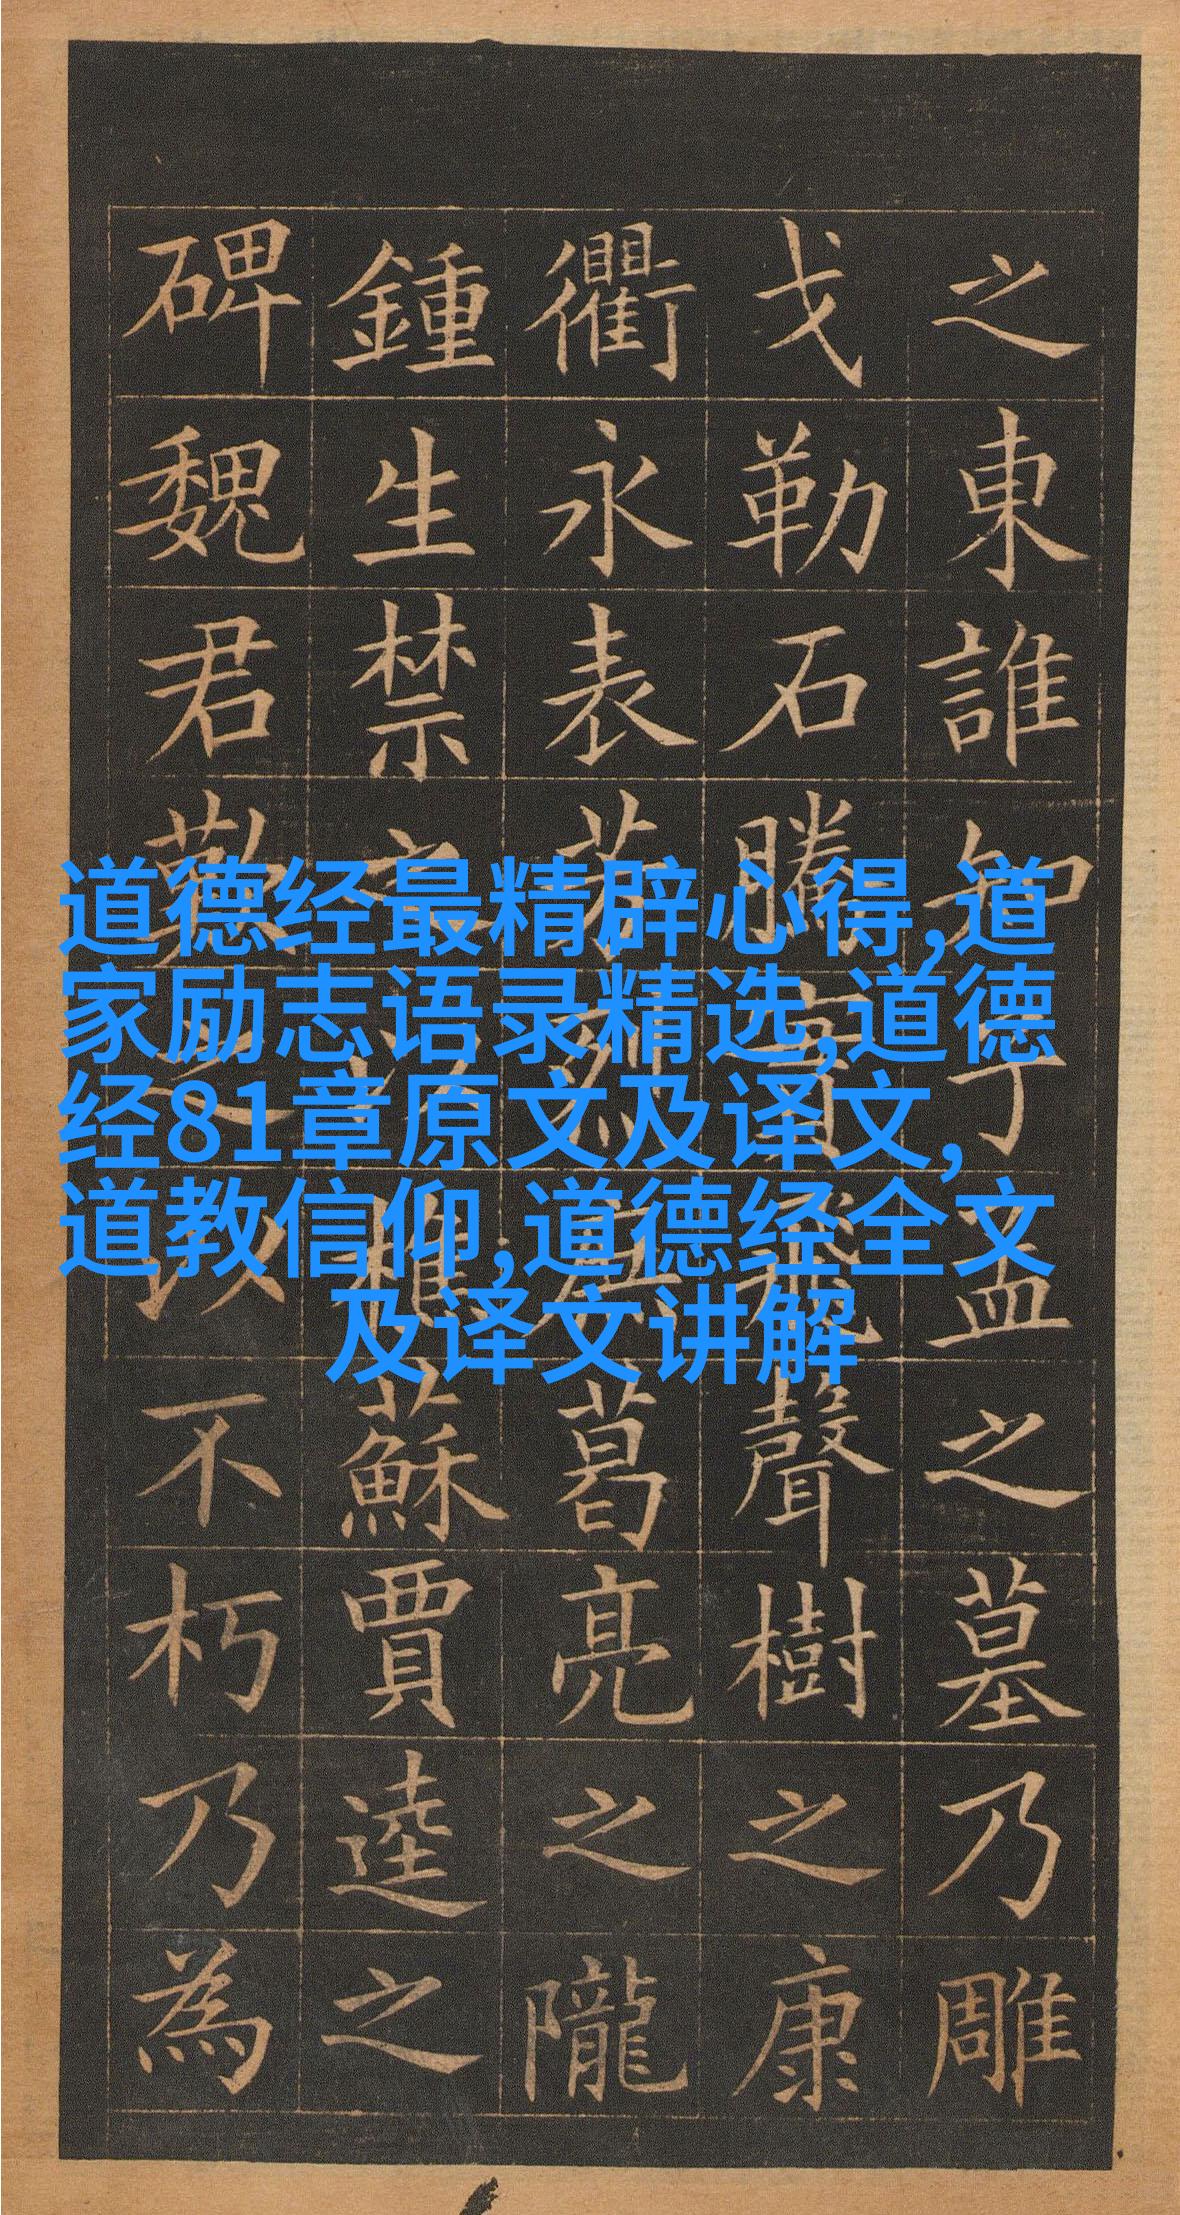 之東誰知子孟之墓乃雕
戈勒石騰實飛聲樹之康
衢永表芳烈庶葛亮之隴
鍾生禁之以樵蘇賈逵之
碑魏君勤之以不朽乃為
道德经最精辟心得,道
家励志语录精选,道德
经81章原文及译文,
道教信仰,道德经全文
及译文讲解